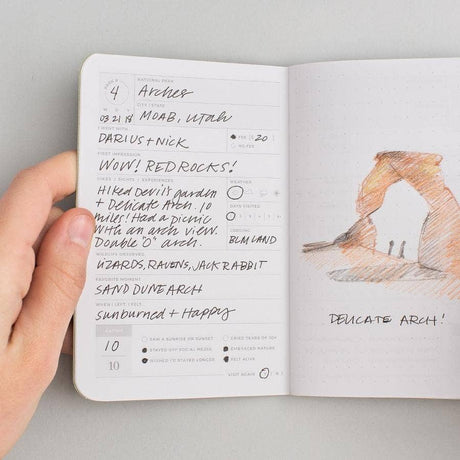 NATIONAL PARK
4
Arches
CITY / STATE
M D Y
03 21 18
MOAB, Utah
I WENT WITH
DARIUS + NICK
FEE $ 20
NO FEE
FIRST IMPRESSION
WOW! RED ROCKS!
HIKES / SIGHTS / EXPERIENCES
WEATHER
Hiked Devil's garden
+ Delicate Arch. 10
miles! Had a picnic
with an arch view.
Double "O" arch.
DAYS VISITED
LODGING
BLM LAND
WILDLIFE OBSERVED
LIZARDS, RAVENS, JACKRABBIT
FAVORITE MOMENT
SAND DUNE ARCH
WHEN I LEFT I FELT
sunburned + Happy
RATING
10
10
SAW A SUNRISE OR SUNSET
CRIED TEARS OF JOY
STAYED OFF SOCIAL MEDIA
EMBRACED NATURE
WISHED I'D STAYED LONGER
FELT ALIVE
VISIT AGAIN
DELICATE ARCH!